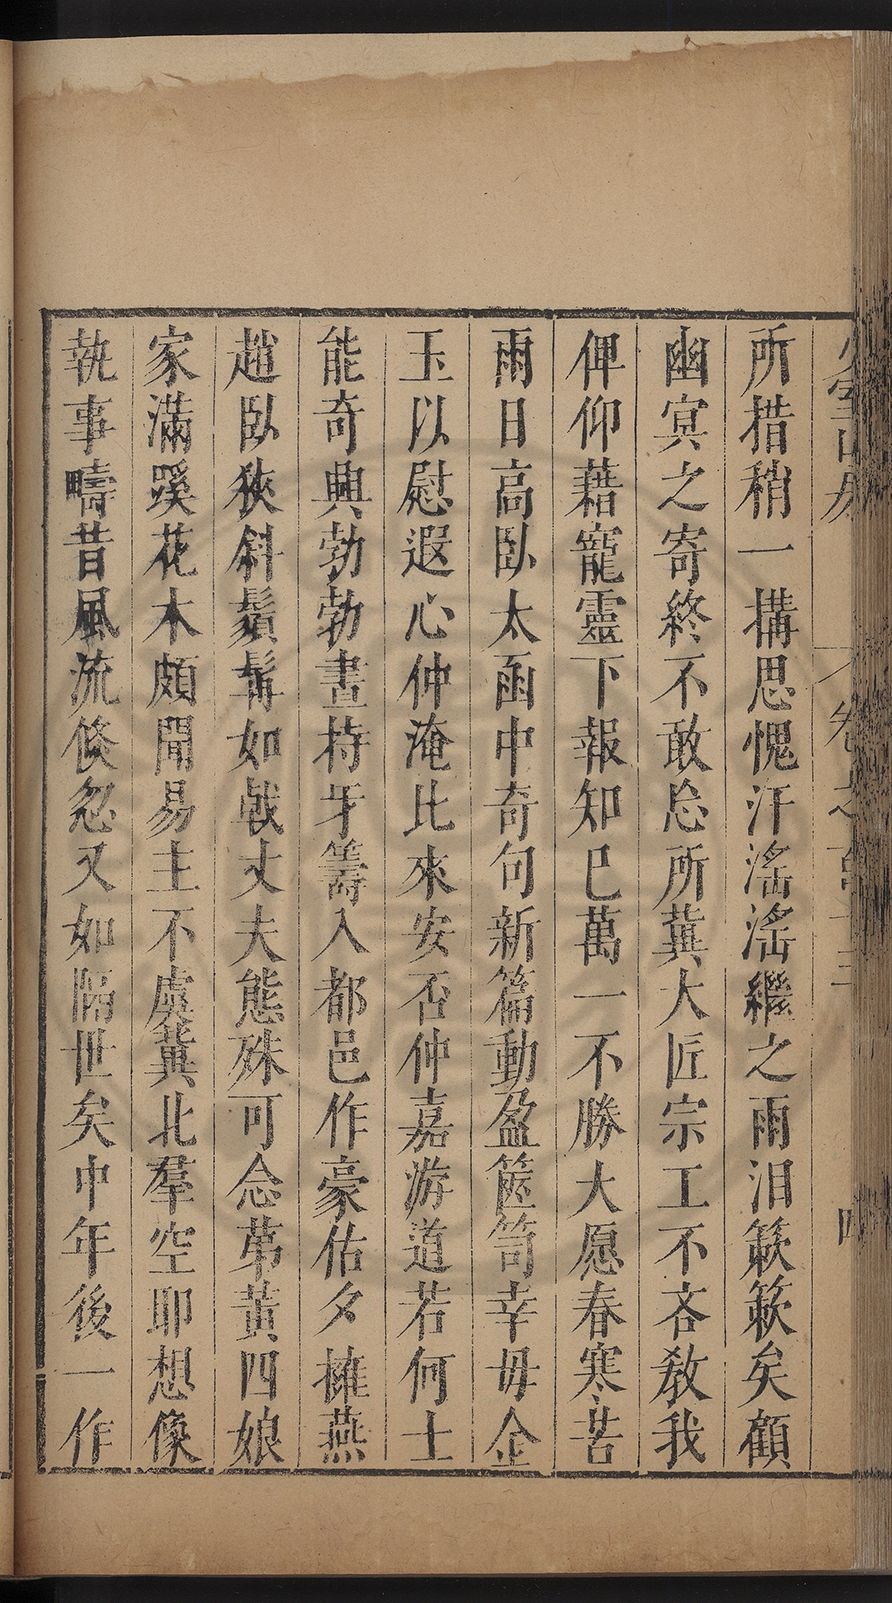 少室山房　卷之百十三　四
所措稍一搆思愧汗滛滛繼之雨泪簌簌矣顧
幽㝠之寄終不敢忘所兾大匠宗工不吝教我
俾仰藉寵靈下報知巳萬一不勝大愿春寒苦
雨日高臥太函中奇句新篇動盈篋笥幸毋金
玉以慰遐心仲淹比來安否仲嘉游道若何士
能奇興勃勃晝持牙籌入都邑作豪估夕擁燕
趙臥狹斜鬚髯如戟丈夫態殊可念苐黃四娘
家滿蹊花木頗聞易主不虞兾北羣空耶想像
執事疇昔風流倐忽又如隔世矣中年後一作